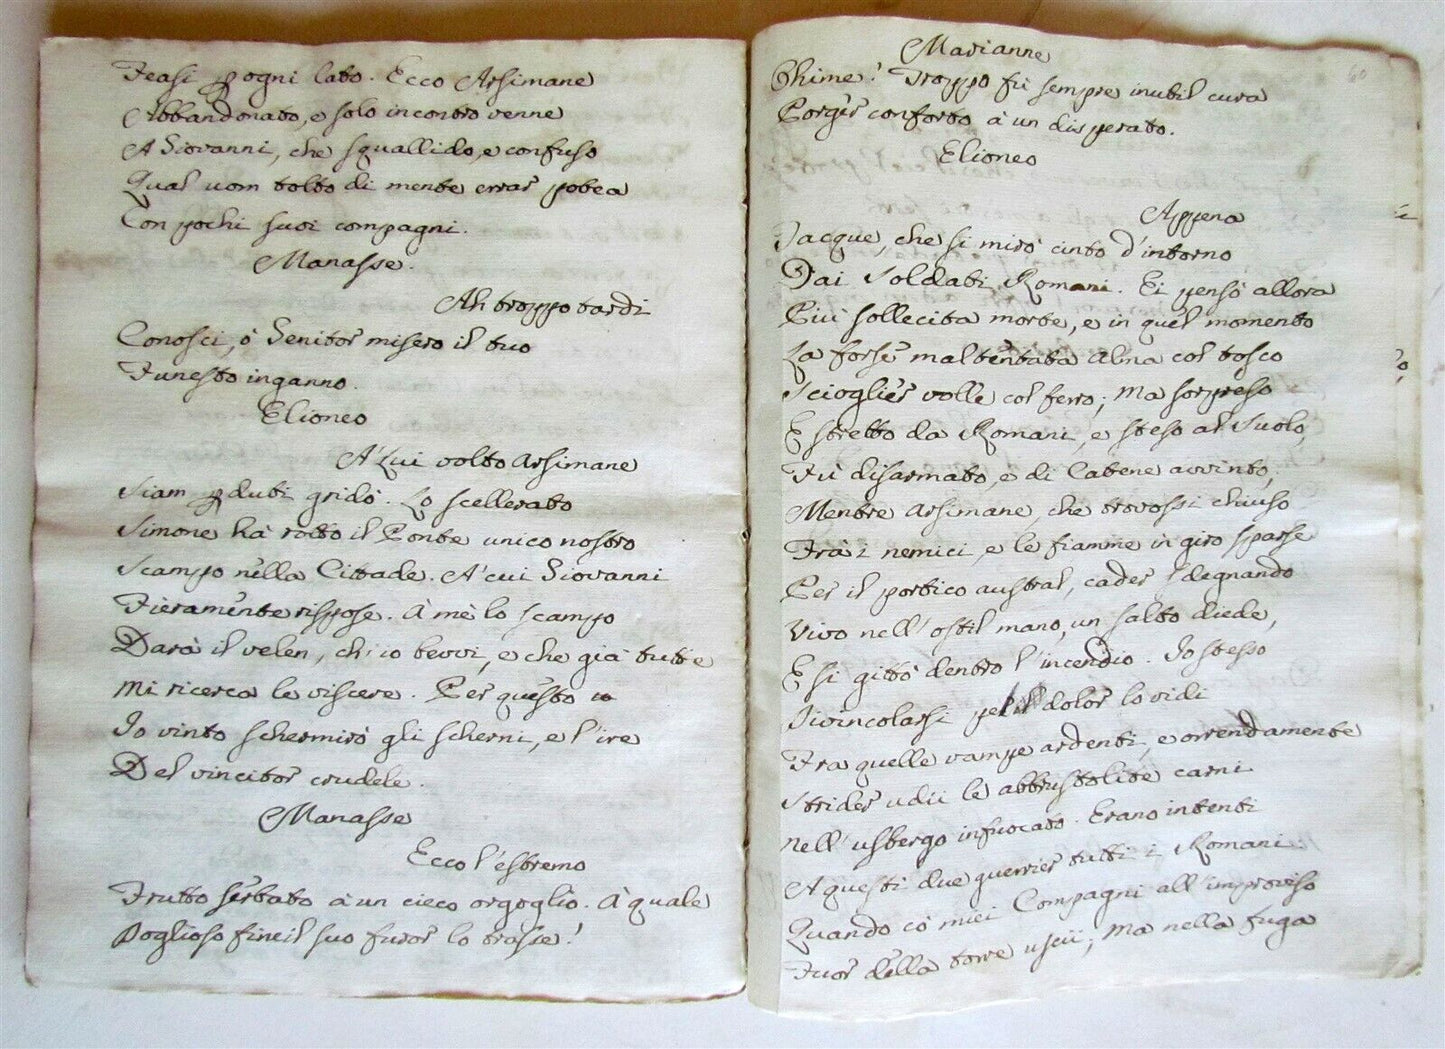 Feasi p ogni lato. Ecco Arsimane
Abbandonato, e solo incontro venne
A Giovanni, che squallido, e confuso
Qual uom tolto di mente errar potea
Con pochi suoi compagni.
Manasse.
Ah troppo tardi
Conosci, ò Genitor misero il tuo
Funesto inganno.
Elioneo
A Lui volto Arsimane
Siam pduti gridò. Lo scellerato
Simone hà rotto il Ponte unico nostro
Scampo nella Cittade. A' cui Giovanni
Fieramente rispose. A mè lo scampo
Darà il velen, ch'io bevvi, e che già tutte
Mi ricerca le viscere. Per questo
Io vinto schermirò gli scherni, e l'ire
Del vincitor crudele.
Manasse
Ecco l'estremo
Frutto serbato à un cieco orgoglio. A quale
Doglioso fine il suo furor lo trasse!
60
Marianne
Ohime! Troppo fù sempre inutil cura
Porger conforto à un disperato.
Elioneo
Appena
Jacque, che si mirò cinto d'intorno
Dai Soldati Romani. Ei pensò allora
Più sollecita morte, e in quel momento
La forse mal tentata alma col tosco
Scioglier volle col ferro; Ma sorpreso
E stretto da Romani, e steso al Suolo,
Fù disarmato, e di Catene avvinto,
Mentre Arsimane, che trovossi chiuso
Frà i nemici, e le fiamme in giro sparse
Per il portico austral, cader sdegnando
Vivo nell' ostil mano, un salto diede,
E si gittò dentro l'incendio. Io stesso
Divincolarsi pel dolor lo vidi
Fra quelle vampe ardenti, e orrendamente
Strider udii le abbrustolite carni
Nell' usbergo infuocato. Erano intenti
A questi due guerrier tutti i Romani
Quando co' miei Compagni all'improviso
Fuor della torre uscii; Ma nella fuga